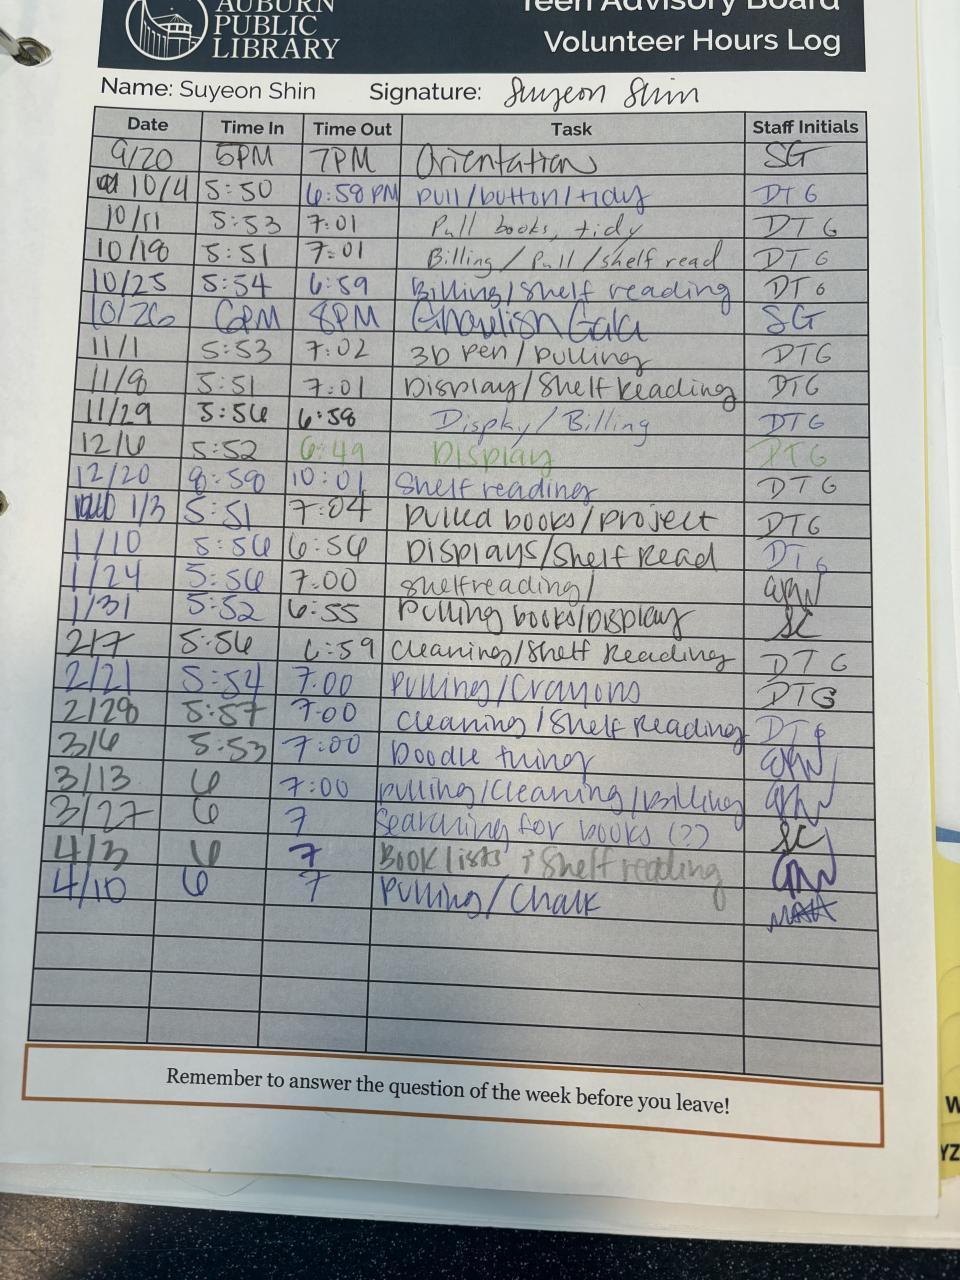 AUBURN
PUBLIC
LIBRARY
Teen Advisory Board
Volunteer Hours Log
Name: Suyeon Shin Signature: Suyeon Shin
Date Time In Time Out Task Staff Initials
9/20 5PM 7PM Orientation SG
10/4 5:50 6:58 PM pull/button/tidy DTG
10/11 5:53 7:01 Pull books, tidy DTG
10/18 5:51 7:01 Billing/Pull/shelf read DTG
10/25 5:54 6:59 Billing/Shelf reading DTG
10/26 6PM 8PM Ghoulish Gala SG
11/1 5:53 7:02 3D pen/pulling DTG
11/8 5:51 7:01 Display/Shelf Reading DTG
11/29 5:56 6:58 Display/Billing DTG
12/6 5:52 6:49 Display DTG
12/20 8:58 10:01 Shelf reading DTG
1/3 5:51 7:04 pulled books/project DTG
1/10 5:56 6:56 Displays/Shelf Read DTG
1/24 5:56 7:00 shelfreading/
1/31 5:52 6:55 Pulling books/Display SC
2/7 5:56 6:59 Cleaning/Shelf Reading DTG
2/21 5:54 7:00 Pulling/Crayons DTG
2/28 5:57 7:00 Cleaning/Shelf Reading DTG
3/6 5:53 7:00 Doodle thing
3/13 6 7:00 pulling/Cleaning/Billing
3/27 6 7 Searching for books (?) SC
4/3 6 7 Book lists + Shelf reading
4/10 6 7 Pulling/Chalk
Remember to answer the question of the week before you leave!
W
YZ